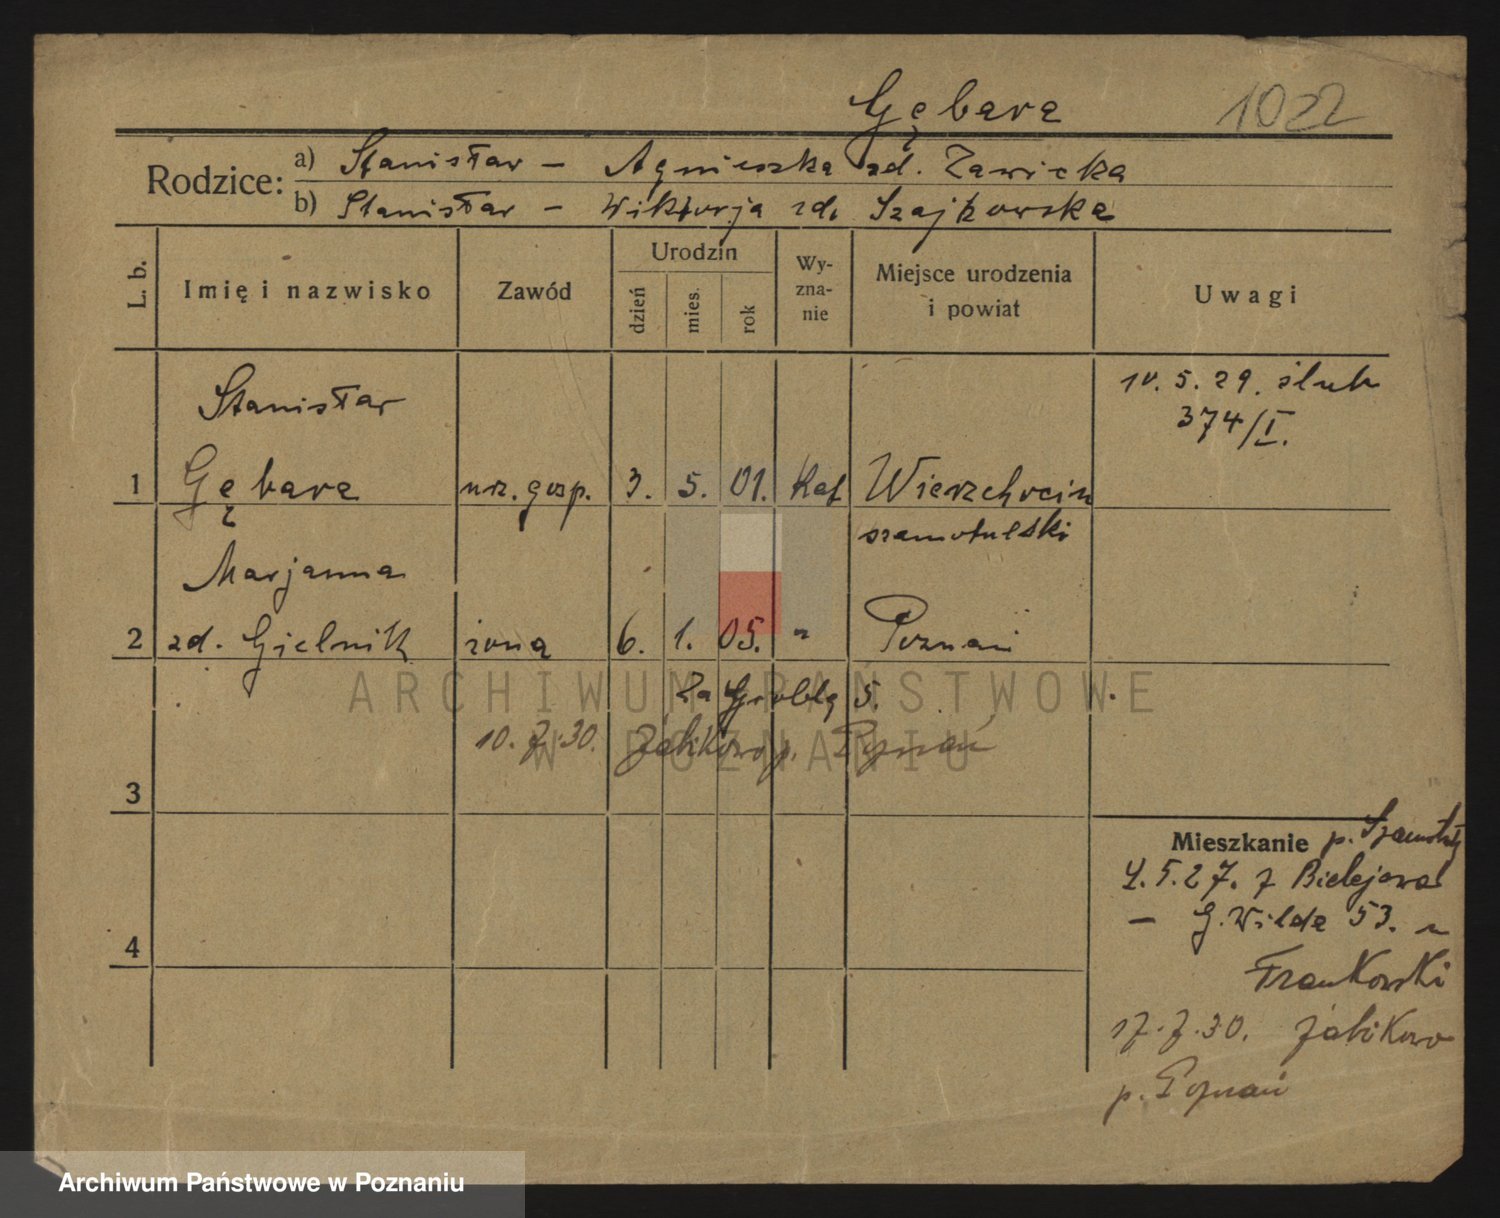 Gębara 1022
Rodzice: a) Stanisław — Agnieszka zd. Zawicka
b) Stanisław — Wiktorja zd. Szajkowska
L. b. Imię i nazwisko Zawód Urodzin dzień mies. rok Wy- zna- nie Miejsce urodzenia i powiat Uwagi
Stanisław
10. 5. 29. ślub
374/I.
1 Gębara urz. gosp. 3. 5. 01. Kat Wierzchocin
szamotulski
Marjanna
2 zd. Gielnik żona 6. 1. 05. " Poznań
Za Groblą 5.
10. 7. 30. Żabikowo p. Poznań
ARCHIWUM PAŃSTWOWE
W POZNANIU
3
Mieszkanie p. Szamotuły
4. 5. 27. z Bielejewa
4
— G. Wilda 53. u
Frankowski
17. 7. 30. Żabikowo
p. Poznań
Archiwum Państwowe w Poznaniu